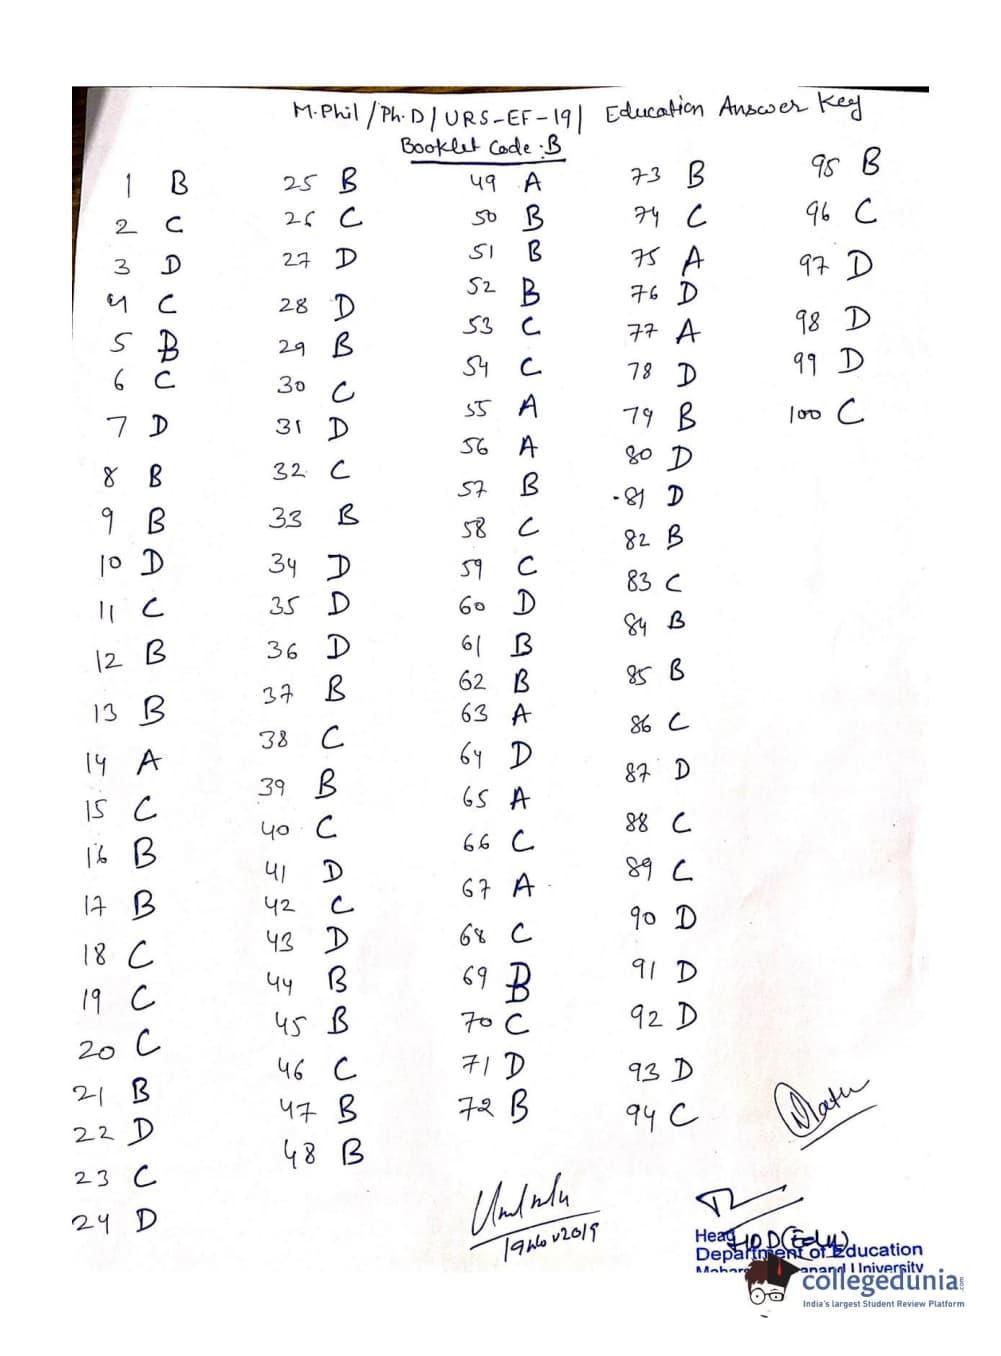 M.Phil/Ph.D/URS-EF-19/ Education Answer Key
Booklet Code:B
1 B
2 C
3 D
4 C
5 B
6 C
7 D
8 B
9 B
10 D
11 C
12 B
13 B
14 A
15 C
16 B
17 B
18 C
19 C
20 C
21 B
22 D
23 C
24 D
25 B
26 C
27 D
28 D
29 B
30 C
31 D
32 C
33 B
34 D
35 D
36 D
37 B
38 C
39 B
40 C
41 D
42 C
43 D
44 B
45 B
46 C
47 B
48 B
49 A
50 B
51 B
52 B
53 C
54 C
55 A
56 A
57 B
58 C
59 C
60 D
61 B
62 B
63 A
64 D
65 A
66 C
67 A
68 C
69 B
70 C
71 D
72 B
19 Nov 2019
73 B
74 C
75 A
76 D
77 A
78 D
79 B
80 D
81 D
82 B
83 C
84 B
85 B
86 C
87 D
88 C
89 C
90 D
91 D
92 D
93 D
94 C
95 B
96 C
97 D
98 D
99 D
100 C
Head
HOD(Edu)
Department of Education
University
collegedunia.com
India's largest Student Review Platform